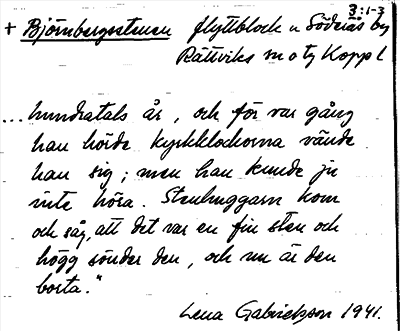 3:1-3
+ Björnbergsstenen flyttblock u Söderås by
Rättviks sn o tg Koppl
... hundratals år, och för var gång
han hörde kyrkklockorna vände
han sig; men han kunde ju
inte höra. Stenhuggarn kom
och såg, att det var en fin sten och
högg sönder den, och nu är den
borta."
Lena Gabrielsson 1941.